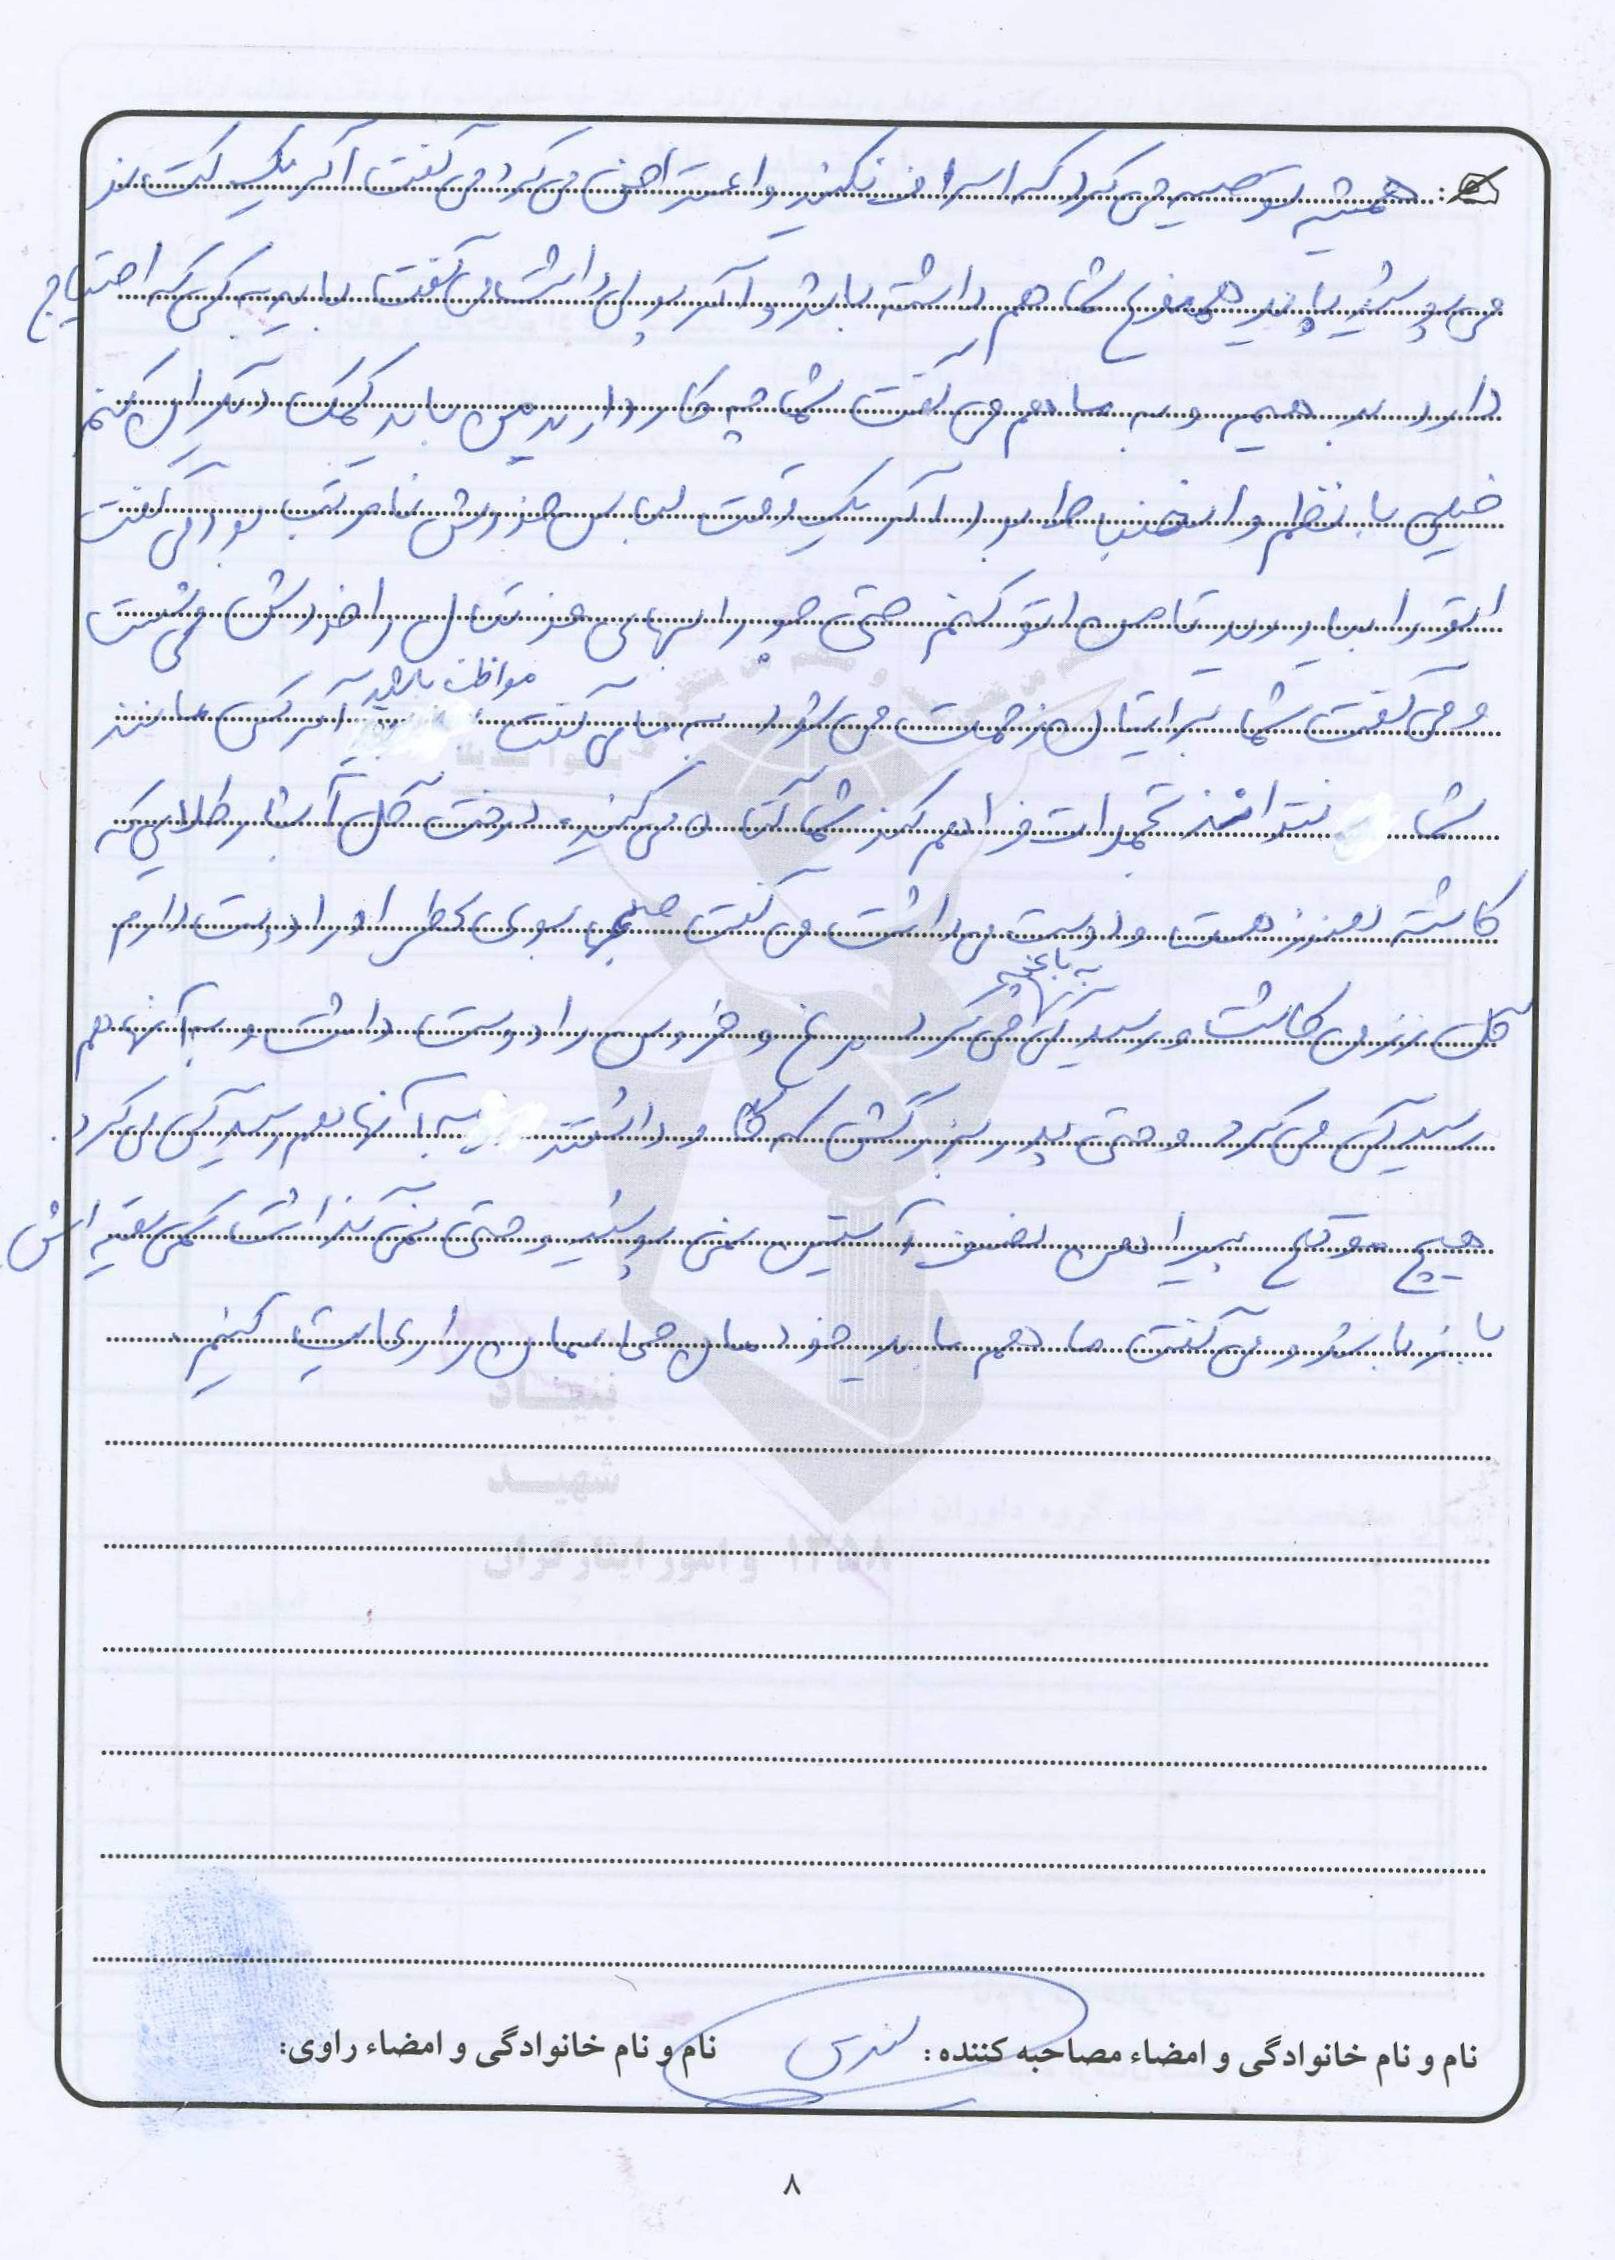 همیشه توصیه می کرد که اسراف نکنید و اعتراض می کرد می گفت اگر یک کت نو
می پوشید باید همنوع شما هم داشته باشد و اگر پولی داشت می گفت باید به کسی که احتیاج
دارد بدهیم و به ما هم می گفت شما چه کار دارید من باید کمک دیگران کنم
خیلی با نظم و انضباط بود اگر یک وقت لباس خودش نامرتب بود می گفت
اتو را بیاورید تا من اتو کنم حتی جورابهای فوتبال را خودش می شست
و می گفت شما برایتان زحمت می شود به ما می گفت مواظب باشید اگر کسی مانند
شما نتوانند تجملات فراهم کند شما گناه می کنید، درخت گل آبشار طلایی که
کاشته هنوز هست و دوست می داشت می گفت بوی عطر او را دوست دارم
گل رز می کاشت و رسیدگی می کرد به باغچه مرغ و خروس را دوست داشت و به آنها هم
رسیدگی می کرد و حتی پدر بزرگش که گاو داشتند به آنها هم رسیدگی می کرد.
هیچ موقع پیراهن نصف آستین نمی پوشید و حتی نمی گذاشت کمی یقه اش
باز باشد و می گفت ما هم باید خودمان حجابمان را رعایت کنیم.
بنیاد
شهید
و امور ایثارگران ۱۳۵۸
نام و نام خانوادگی و امضاء مصاحبه کننده: نام و نام خانوادگی و امضاء راوی:
۸